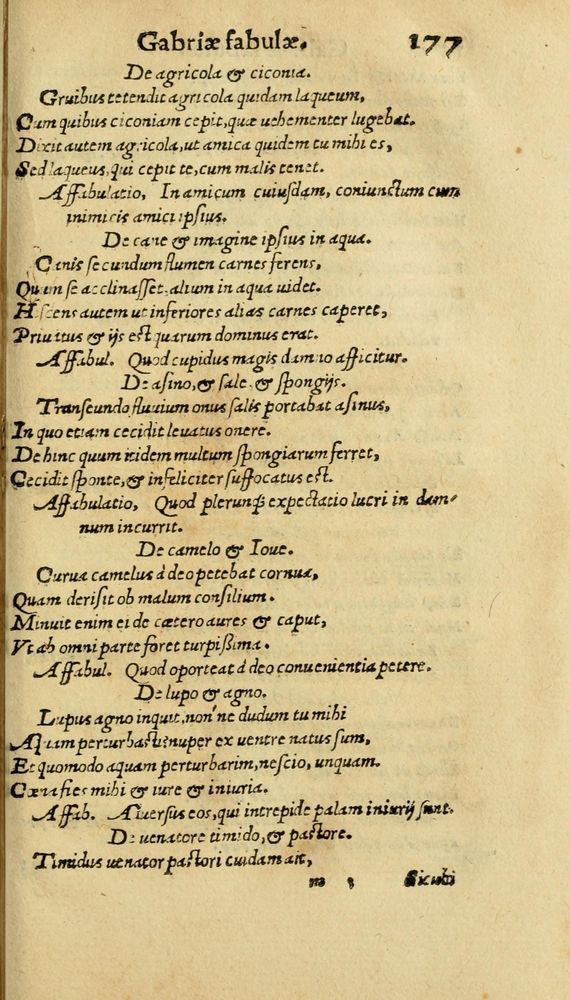 Gabriæ fabulæ. 177
De agricola & ciconia.
Gruibus tetendit agricola quidam laqueum,
Cum quibus ciconiam cepit, quæ uehementer lugebat.
Dixit autem agricola, ut amica quidem tu mihi es,
Sed laqueus, qui cepit te, cum malis tenet.
Affabulatio, In amicum cuiusdam, coniunctum cum
inimicis amici ipsius.
De cane & imagine ipsius in aqua.
Canis secundum flumen carnes ferens,
Quum se acclinasset, alium in aqua uidet.
Hiscens autem ut inferiores alias carnes caperet,
Priuatus & ijs est quarum dominus erat.
Affabul. Quod cupidus magis damno afficitur.
De asino, & sale, & spongijs.
Transeundo fluuium onus salis portabat asinus,
In quo etiam cecidit leuatus onere.
Dehinc quum itidem multum spongiarum ferret,
Cecidit sponte, & infeliciter suffocatus est.
Affabulatio, Quod plerunq; expectatio lucri in dam-
num incurrit.
De camelo & Ioue.
Curua camelus à deo petebat cornua,
Quam derisit ob malum consilium.
Minuit enim ei de cætero aures & caput,
Vt ab omni parte foret turpißima.
Affabul. Quod oporteat à deo conuenientia petere.
De lupo & agno.
Lupus agno inquit, non'ne dudum tu mihi
Aquam perturbasti? nuper ex uentre natus sum,
Et quomodo aquam perturbarim, nescio, unquam.
Cœna fies mihi & iure & iniuria.
Affab. Aduersus eos, qui intrepide palam iniurij sunt.
De uenatore timido, & pastore.
Timidus uenator pastori cuidam ait,
m 3 Sicubi